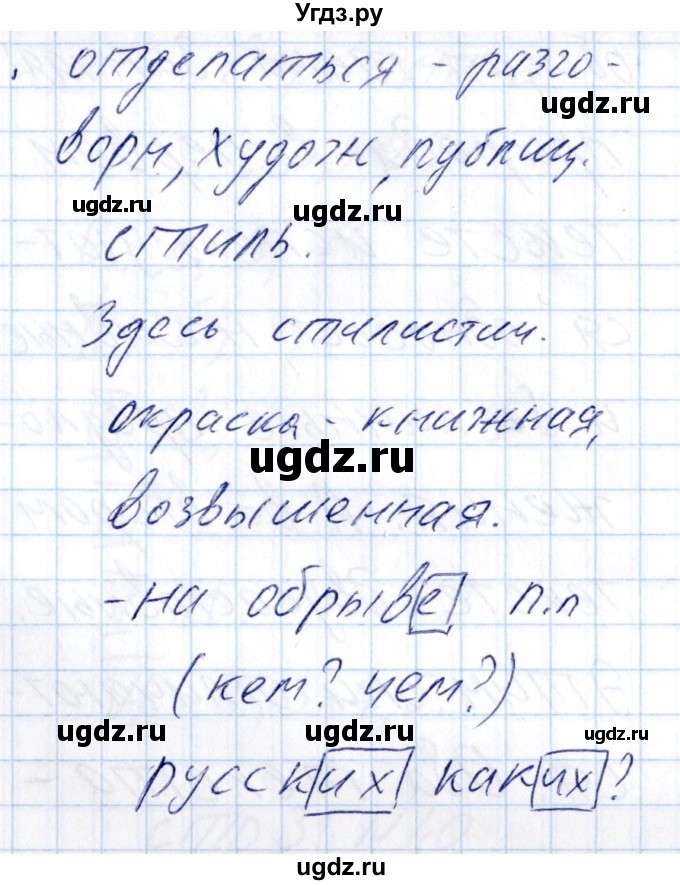 Угдз.ру
отделаться - разго-
ugdz.ru
ugdz.ru
ворн, худож, публиц.
ugdz.ru
ugdz.ru
стиль.
ugdz.ru
Здесь стилистич.
окраска - книжная,
ugdz.ru
возвышенная.
- на обрыве п.п
(кем? чем?)
ugdz.ru
ugdz.ru
ugdz.ru
русских каких?
ugdz.ru